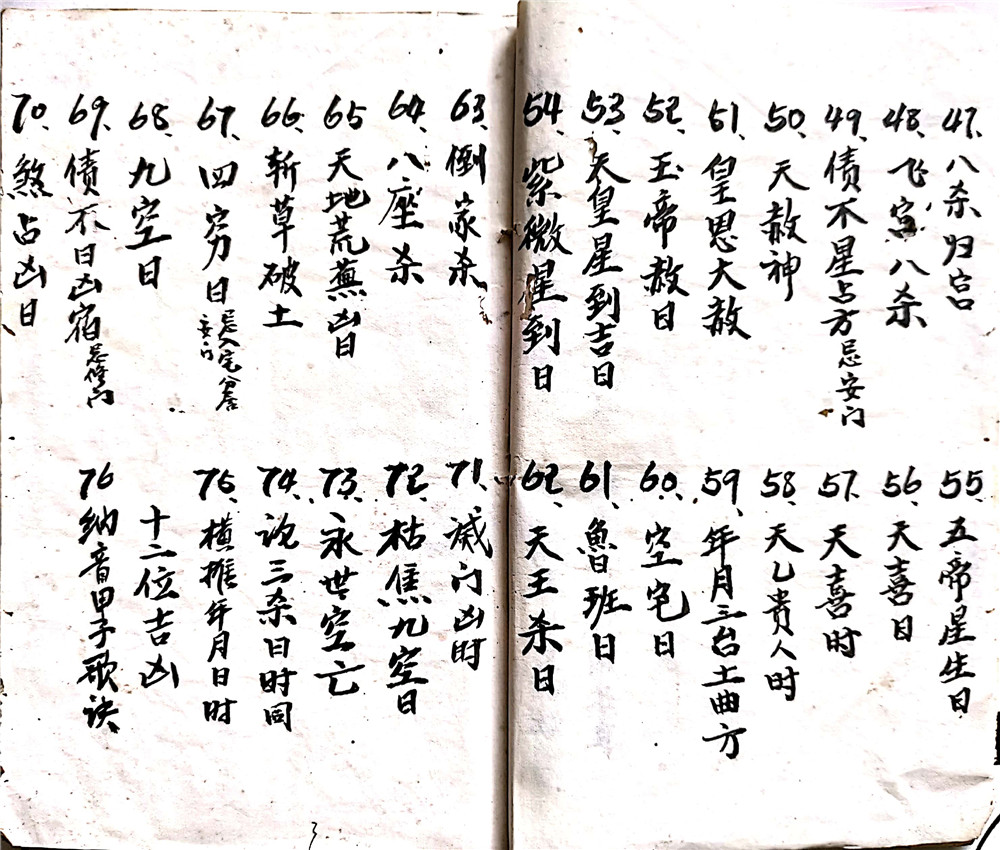 47、八杀归宫
48、飞宫八杀
49、债不星占方忌安门
50、天赦神
51、皇恩大赦
52、玉帝赦日
53、天皇星到吉日
54、紫微星到日
55、五帝星生日
56、天喜日
57、天喜时
58、天乙贵人时
59、年月三台土曲方
60、空宅日
61、魯班日
62、天王杀日
63、倒家杀
64、八座杀
65天地荒蕪凶日
66、斩草破土
67、四穷日忌入宅分居
安门
68、九空日
69、债不日凶宿忌修门
70、煞占凶日
71、灭门凶时
72、枯焦九空日
73、永世空亡
74、说三杀日时同
75、横推年月日时
十二位吉凶
76纳音甲子歌诀